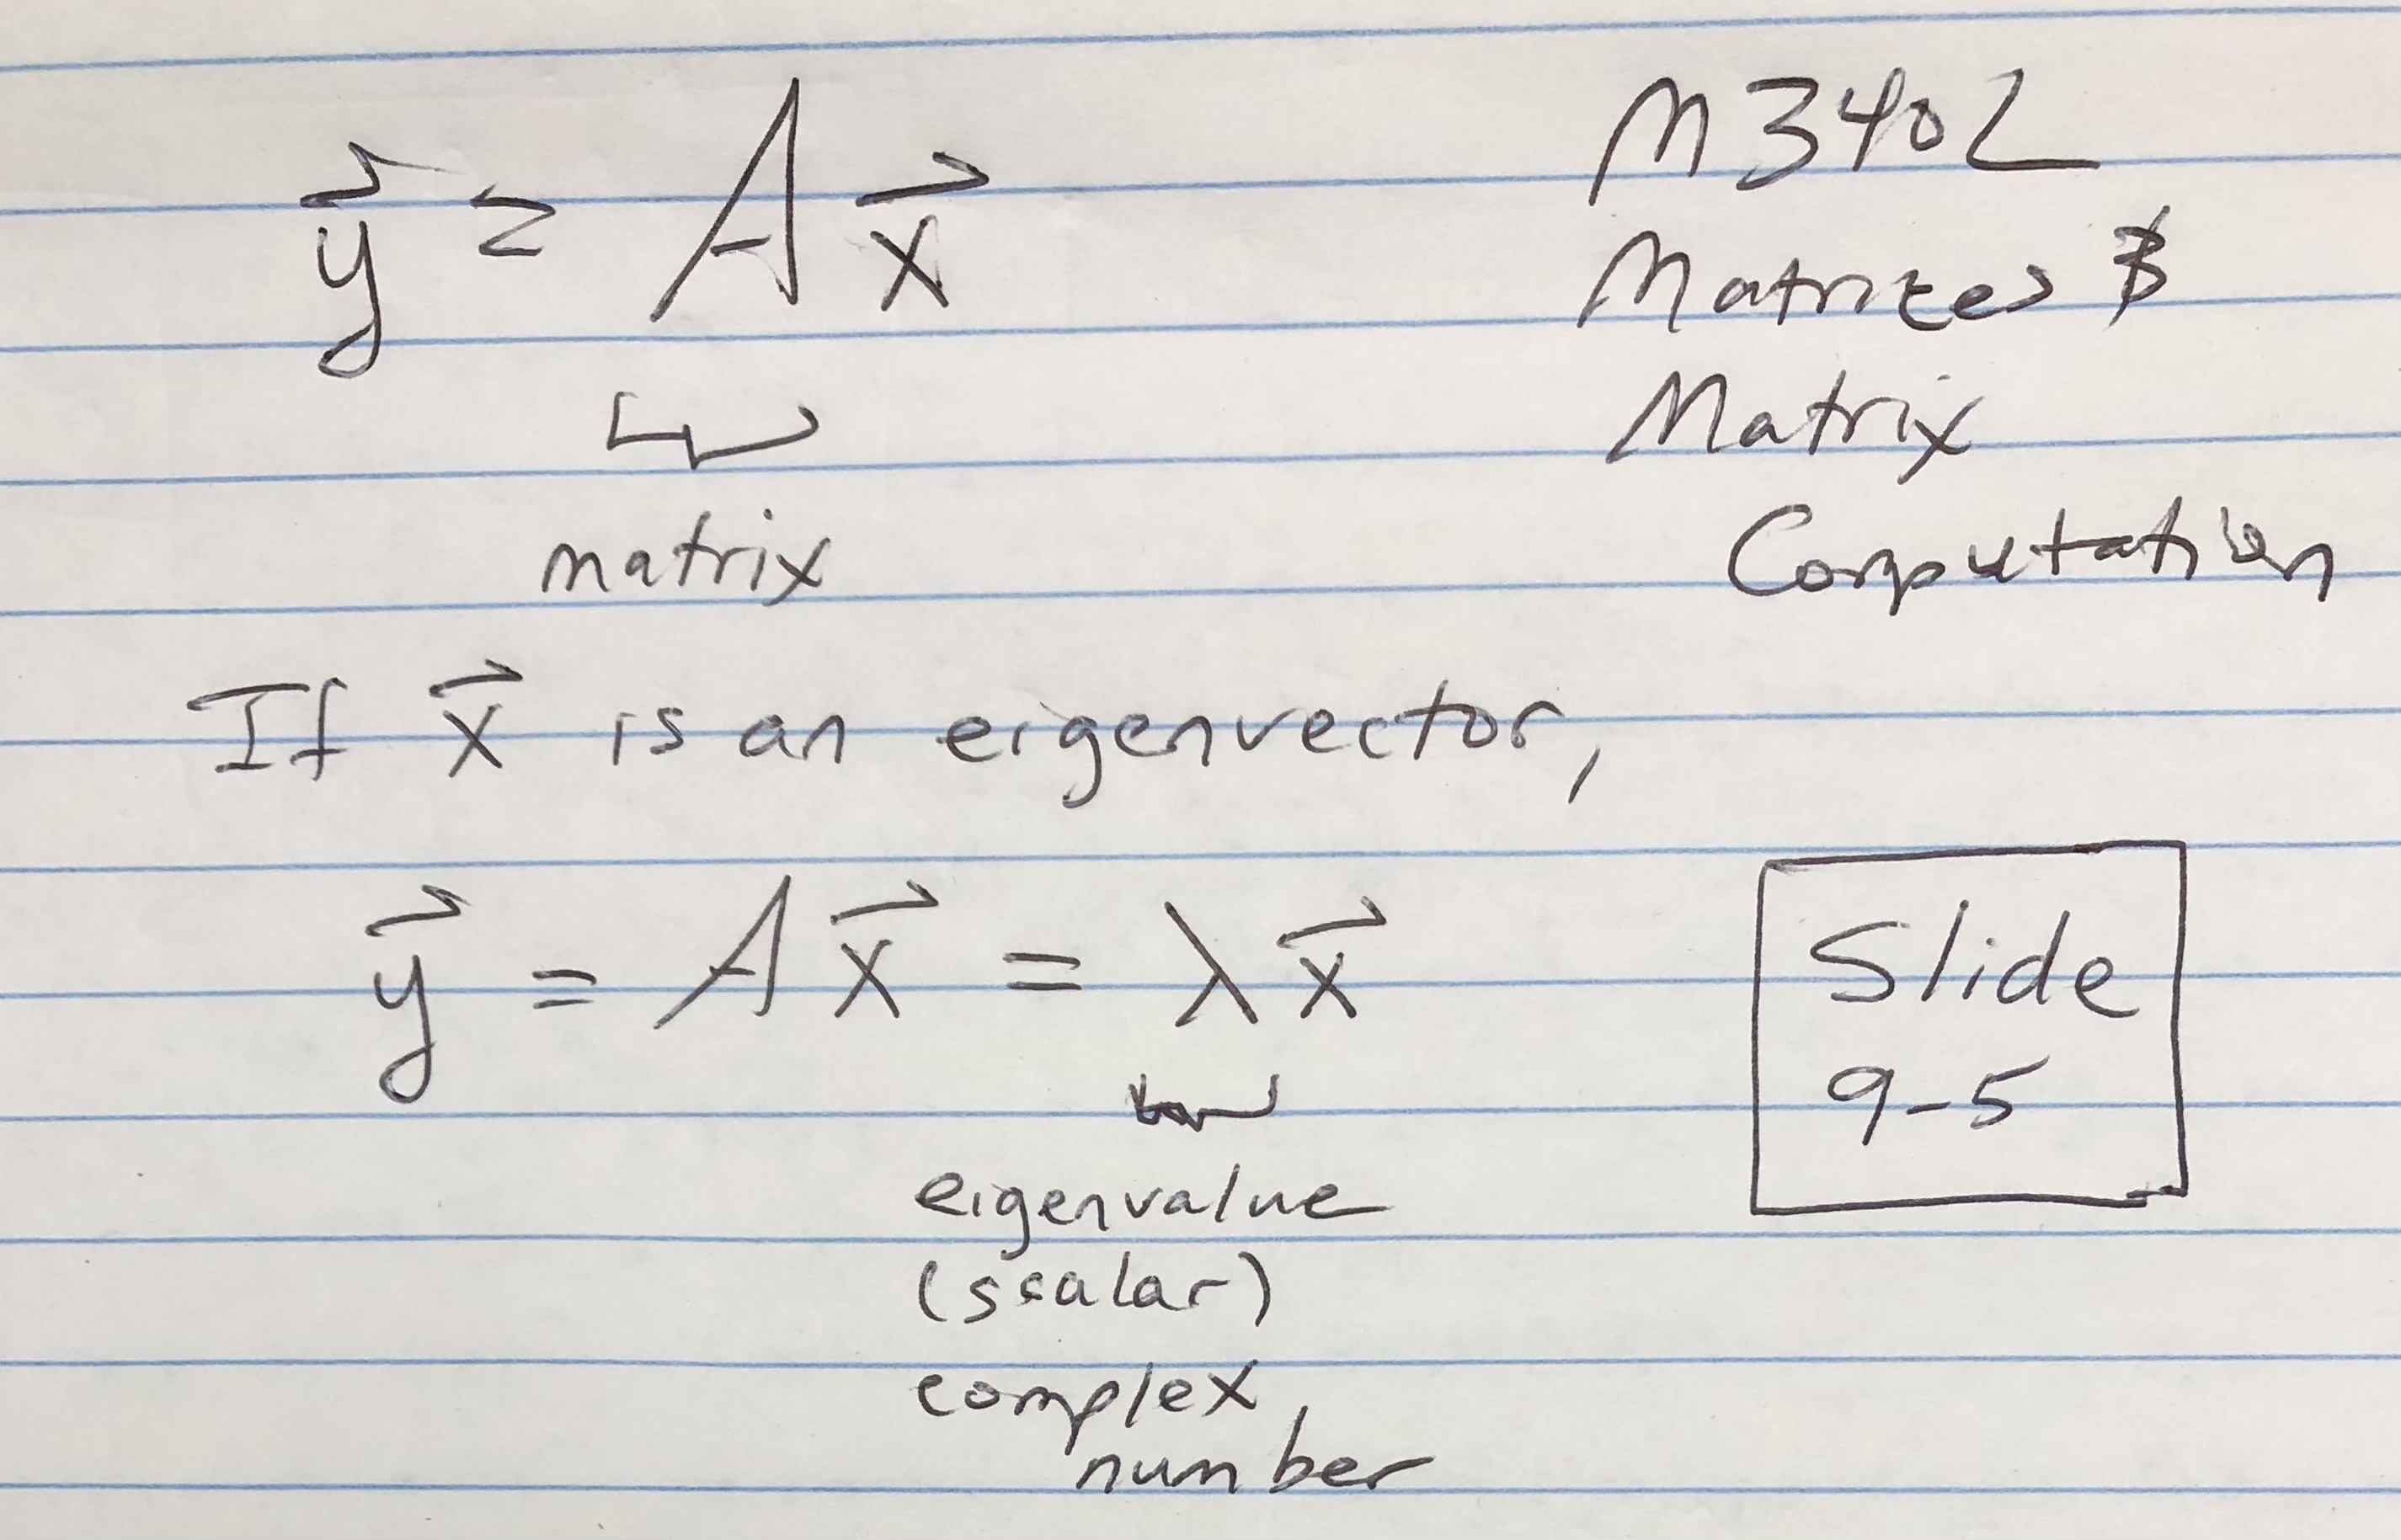 y⃗ = A x⃗
matrix
M340L
Matrices &
Matrix
Computation
If x⃗ is an eigenvector,
y⃗ = A x⃗ = λ x⃗
eigenvalue
(scalar)
complex
number
Slide
9-5